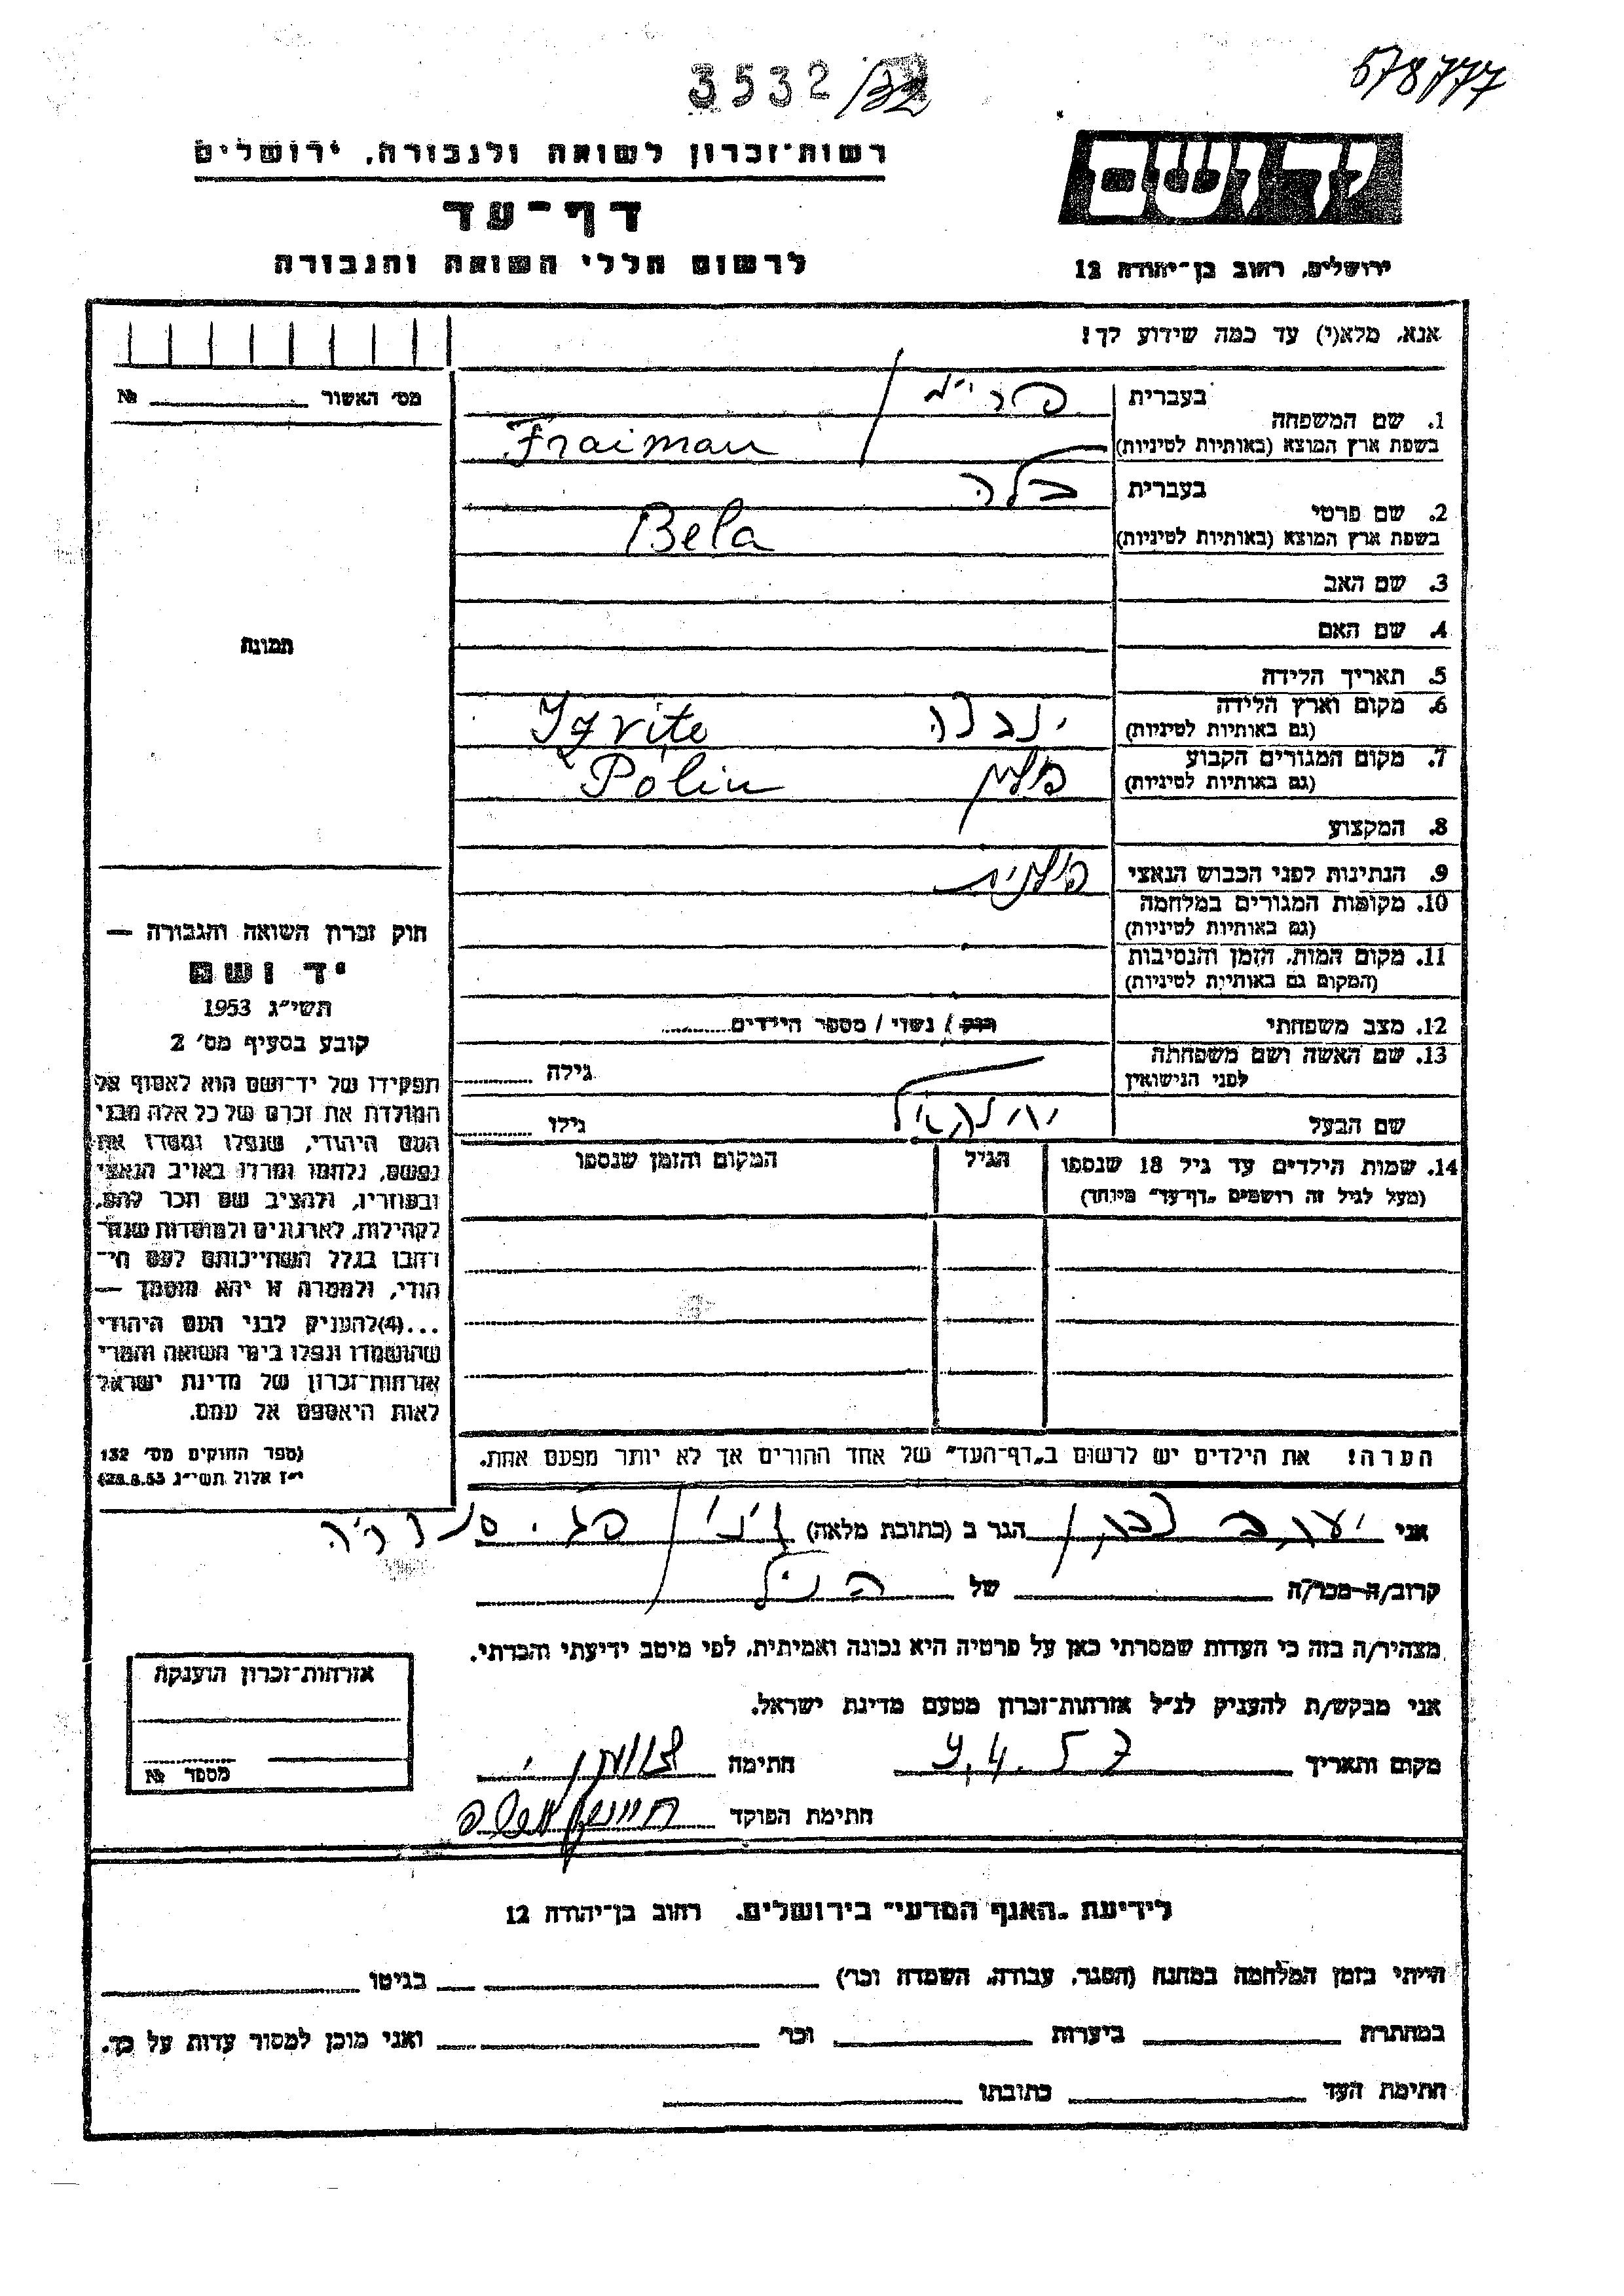 3532/32
578777
רשות־זכרון לשואה ולגבורה, ירושלים
דף־עד
לרשום חללי השואה והגבורה
יד ושם
ירושלים, רחוב בן־יהודה 12
אנא, מלא(י) עד כמה שידוע לך!
מס׳ האשור № 
תמונה
1. שם המשפחה
בעברית
בשפת ארץ המוצא (באותיות לטיניות) Fraiman
2. שם פרטי
בעברית בלה
בשפת ארץ המוצא (באותיות לטיניות) Bela
3. שם האב
4. שם האם
5. תאריך הלידה
6. מקום וארץ הלידה
(גם באותיות לטיניות)
7. מקום המגורים הקבוע פולין Polin
(גם באותיות לטיניות)
8. המקצוע
9. הנתינות לפני הכבוש הנאצי פולנית
10. מקומות המגורים במלחמה
(גם באותיות לטיניות)
11. מקום המות, הזמן והנסיבות
(המקום גם באותיות לטיניות)
12. מצב משפחתי רווק / נשוי / מספר הילדים
13. שם האשה ושם משפחתה
לפני הנישואין
גילה
שם הבעל
גילו
14. שמות הילדים עד גיל 18 שנספו
(מעל לגיל זה רושמים „דף־עד״ מיוחד)
הגיל
המקום והזמן שנספו
הערה! את הילדים יש לרשום ב„דף־העד״ של אחד ההורים אך לא יותר מפעם אחת.
חוק זכרון השואה והגבורה —
יד ושם
תשי״ג 1953
קובע בסעיף מס׳ 2
תפקידו של יד־ושם הוא לאסוף אל
המולדת את זכרם של כל אלה מבני
העם היהודי, שנפלו ומסרו את
נפשם, נלחמו ומרדו באויב הנאצי
ובעוזריו, ולהציב שם וזכר להם,
לקהילות, לארגונים ולמוסדות שנח־
רבו בגלל השתייכותם לעם הי־
הודי, ולמטרה זו יהא מוסמך —
...(4)להעניק לבני העם היהודי
שהושמדו ונפלו בימי השואה והמרי
אזרחות־זכרון של מדינת ישראל
לאות היאספם אל עמם.
(ספר החוקים מס׳ 132
י״ז אלול תשי״ג 28.8.53)
אני יעקב הגר ב (כתובת מלאה)
קרוב/ה־מכר/ה של הנ״ל
מצהיר/ה בזה כי העדות שמסרתי כאן על פרטיה היא נכונה ואמיתית, לפי מיטב ידיעתי והכרתי.
אני מבקש/ת להעניק לנ״ל אזרחות־זכרון מטעם מדינת ישראל.
מקום ותאריך 9.4.57 חתימה
חתימת הפוקד
אזרחות־זכרון הוענקה
מספר №
לידיעת „האגף המדעי״ בירושלים, רחוב בן־יהודה 12
הייתי בזמן המלחמה במחנה (הסגר, עבודה, השמדה וכו׳) בגיטו
במחתרת ביערות וכו׳ ואני מוכן למסור עדות על כך.
חתימת העד כתובתו